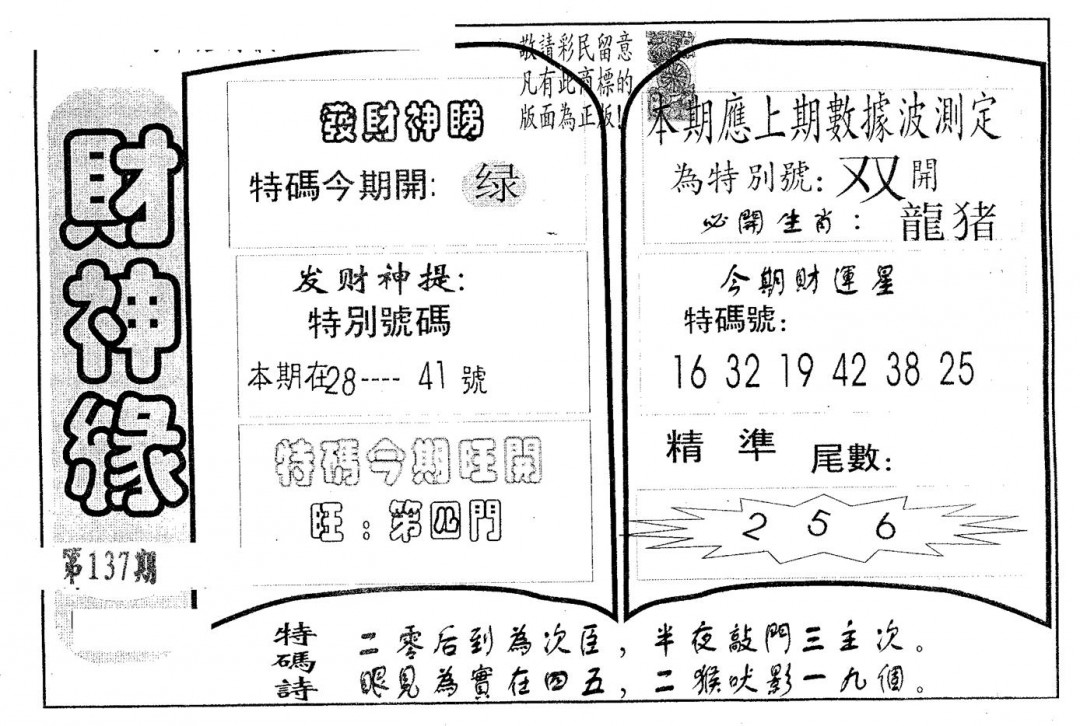 財神緣
第137期
敬請彩民留意
凡有此商標的
版面為正版!
發財神睇
特碼今期開: 绿
发财神提:
特別號碼
本期在28---- 41 號
特碼今期旺開
旺: 第四門
本期應上期數據波測定
為特別號: 双 開
必開生肖: 龍猪
今期財運星
特碼號:
16 32 19 42 38 25
精準 尾數:
2 5 6
特碼詩
二零后到為次臣,半夜敲門三主次。
眼見為實在四五,二猴吠影一九個。